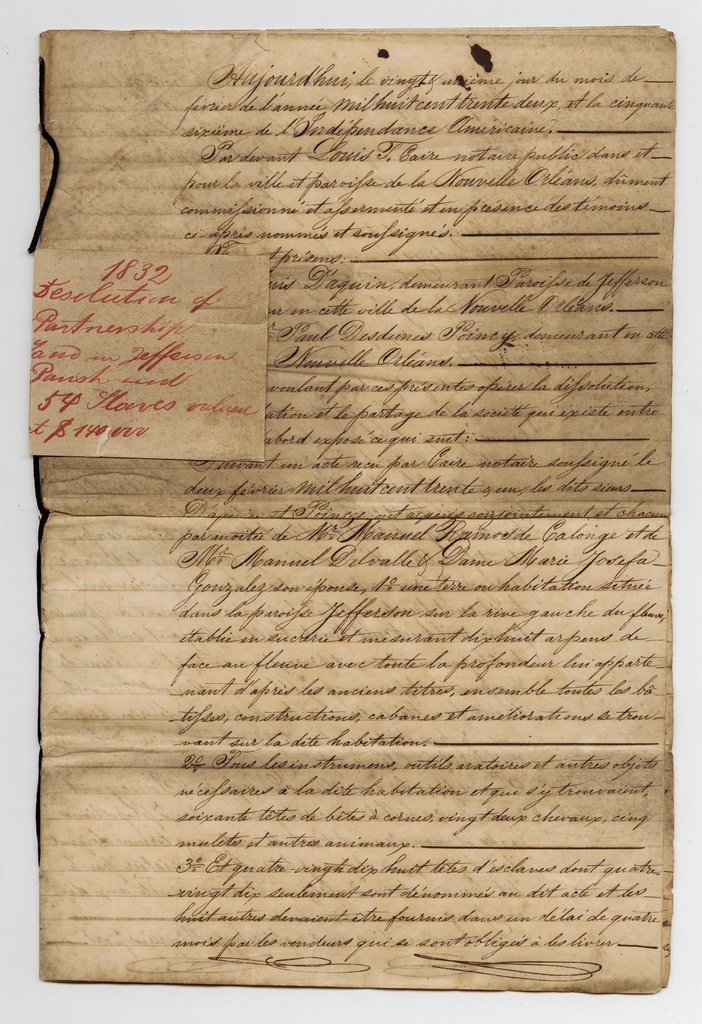 Aujourd'hui, le vingt & unième jour du mois de
février de l'année mil huit cent trente deux, et la cinquante
sixième de l'Indépendance Américaine.
Par devant Louis T. Caire notaire public dans et
pour la ville et paroisse de la Nouvelle Orléans, dûment
commissionné et assermenté et en présence des témoins
ci-après nommés et soussignés.
t présens:
uis D'aquin, demeurant Paroisse de Jefferson
ur en cette ville de la Nouvelle Orléans.
Paul Desdunes Poincy, demeurant en cette
Nouvelle Orléans.
voulant par ces présentes opérer la dissolution,
ation et le partage de la société qui existe entre
abord exposé ce qui suit:
1832
Desolution of
Partnership
Land in Jefferson
Parish and
54 Slaves valued
at $ 140,000
Suivant un acte reçu par Caire notaire soussigné le
deux février mil huit cent trente & un, les dits sieurs
D'aquin et Poincy, ont acquis conjointement et chacun
par moitié de Mr. Manuel Ramos de Calonge et de
Mr. Manuel Delvalle & Dame Marie Josefa
Gonzalez son épouse, 1o. une terre ou habitation située
dans la paroisse Jefferson sur la rive gauche du fleuve,
établie en sucrerie et mesurant dix huit arpens de
face au fleuve avec toute la profondeur lui apparte-
nant d'après les anciens titres, ensemble toutes les bâ-
tisses, constructions, cabanes et améliorations se trou-
vant sur la dite habitation.
2o. Tous les instrumens, outils aratoires et autres objets
nécessaires à la dite habitation et qui s'y trouvaient,
soixante têtes de bêtes à cornes, vingt deux chevaux, cinq
mulets et autres animaux.
3o. Et quatre vingt dix huit têtes d'esclaves dont quatre
vingt dix seulement sont dénommés au dit acte et les
huit autres devaient être fournis dans un délai de quatre
mois par les vendeurs qui se sont obligés à les livrer.